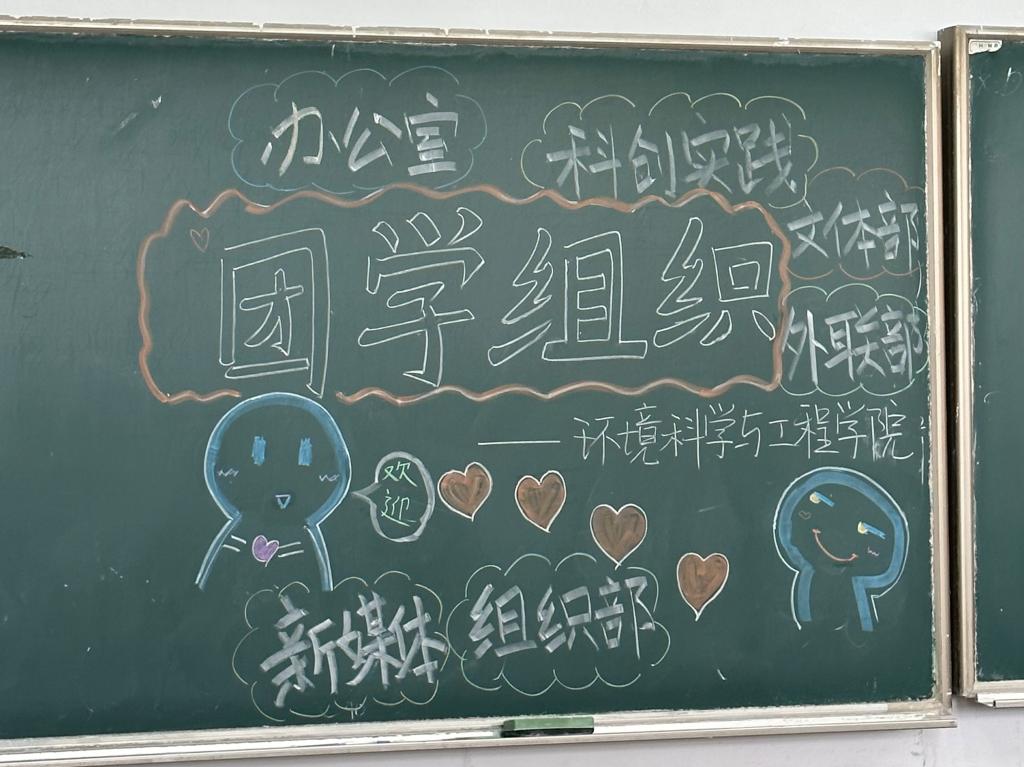 办公室
科创实践
文体部
团学组织
外联部
——环境科学与工程学院
欢
迎
新媒体
组织部